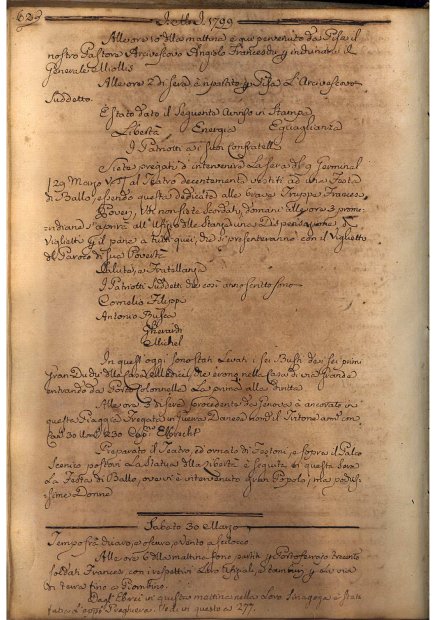 629
1799
Alle ore 10 della mattina è qui pervenuto da Pisa il
nostro Pastore Arcivescovo Angelo Franceschi p inchinare il
Generale Miollis
Alle ore 2 di sera è ripartito p Pisa L'Arcivescovo
Suddetto.
È Stato dato il Seguente Avviso in Stampa
Libertà Energia Eguaglianza
I Patriotti a i suoi Confratelli
Siete pregati d'intervenire La sera de 9 Germinal
29 Marzo al Teatro decentemente vestiti ad una Festa
di Ballo, essendo questa dedicata alle brave Truppe Francesi
Poveri, Voi non siete scordati, domani alle ore 3 pomeri-
diane s'aprirà all' una dispensazione di
Viglietti p il pane a tutti quei, che si presenteranno con il Viglietto
del Paroco di sua Povertà
Salute, e Fratellanza
I Patriotti Suddetti
Cornelio Filippi
Antonio Busca
Gherardi
Michel
In quest'oggi sono stati Levati i sei Busti dei sei primi
Gran Duchi della Casa Medici, che erono nella Casa di via Grande
entrando da Porta Colonnella La prima alla diritta
Alle ore 3 di sera procedente da Genova è ancorato in
questa Piaggia Fregata in Guerra Danese nom. il Tritone am. con
Can. 30 Uom. 230 Cap.no
Preparato il Teatro, ed ornato di Festoni, e sopra il Palco
Scenico postovi La Statua della Libertà è seguita in questa sera
La Festa di Ballo, ove vi è intervenuto gran Popolo, ma pochis-
sime Donne
Sabato 30 Marzo
Tempo frà chiaro, e oscuro, vento a scilocco
Alle ore 6 della mattina sono partiti p Portoferraio trecento
soldati Francesi con i rispettivi Loro Ufiziali, e tamburi p via
di terra fino a Piombino.
Dagl'Ebrei in questa mattina nella Loro Sinagoga è stata
fatta Preghiera. Vedi in questo a 277.